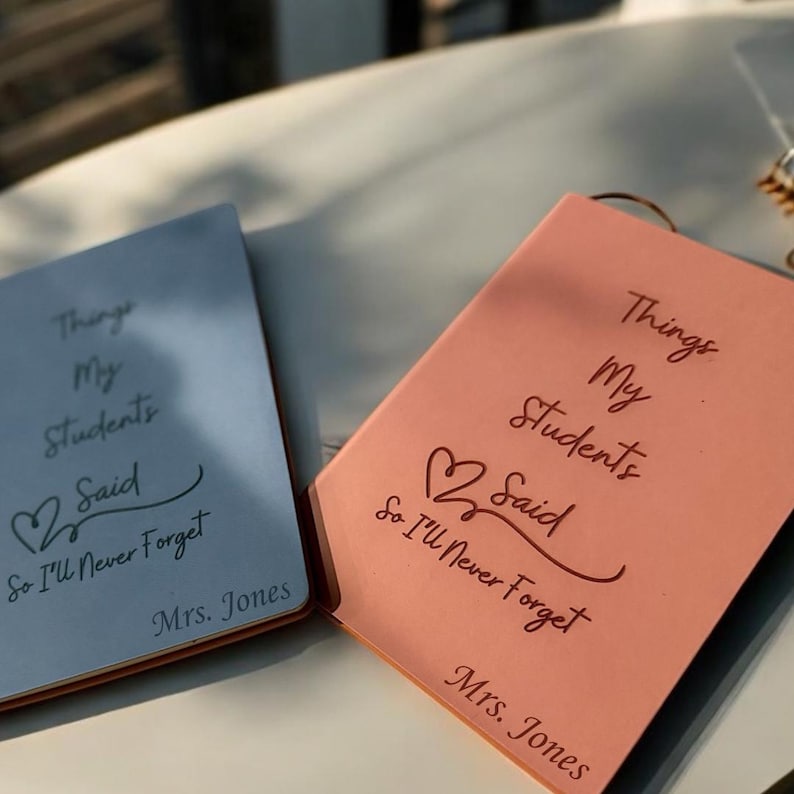 Things
My
Students
Said
So I'll Never Forget
Mrs. Jones
Things
My
Students
Said
So I'll Never Forget
Mrs. Jones